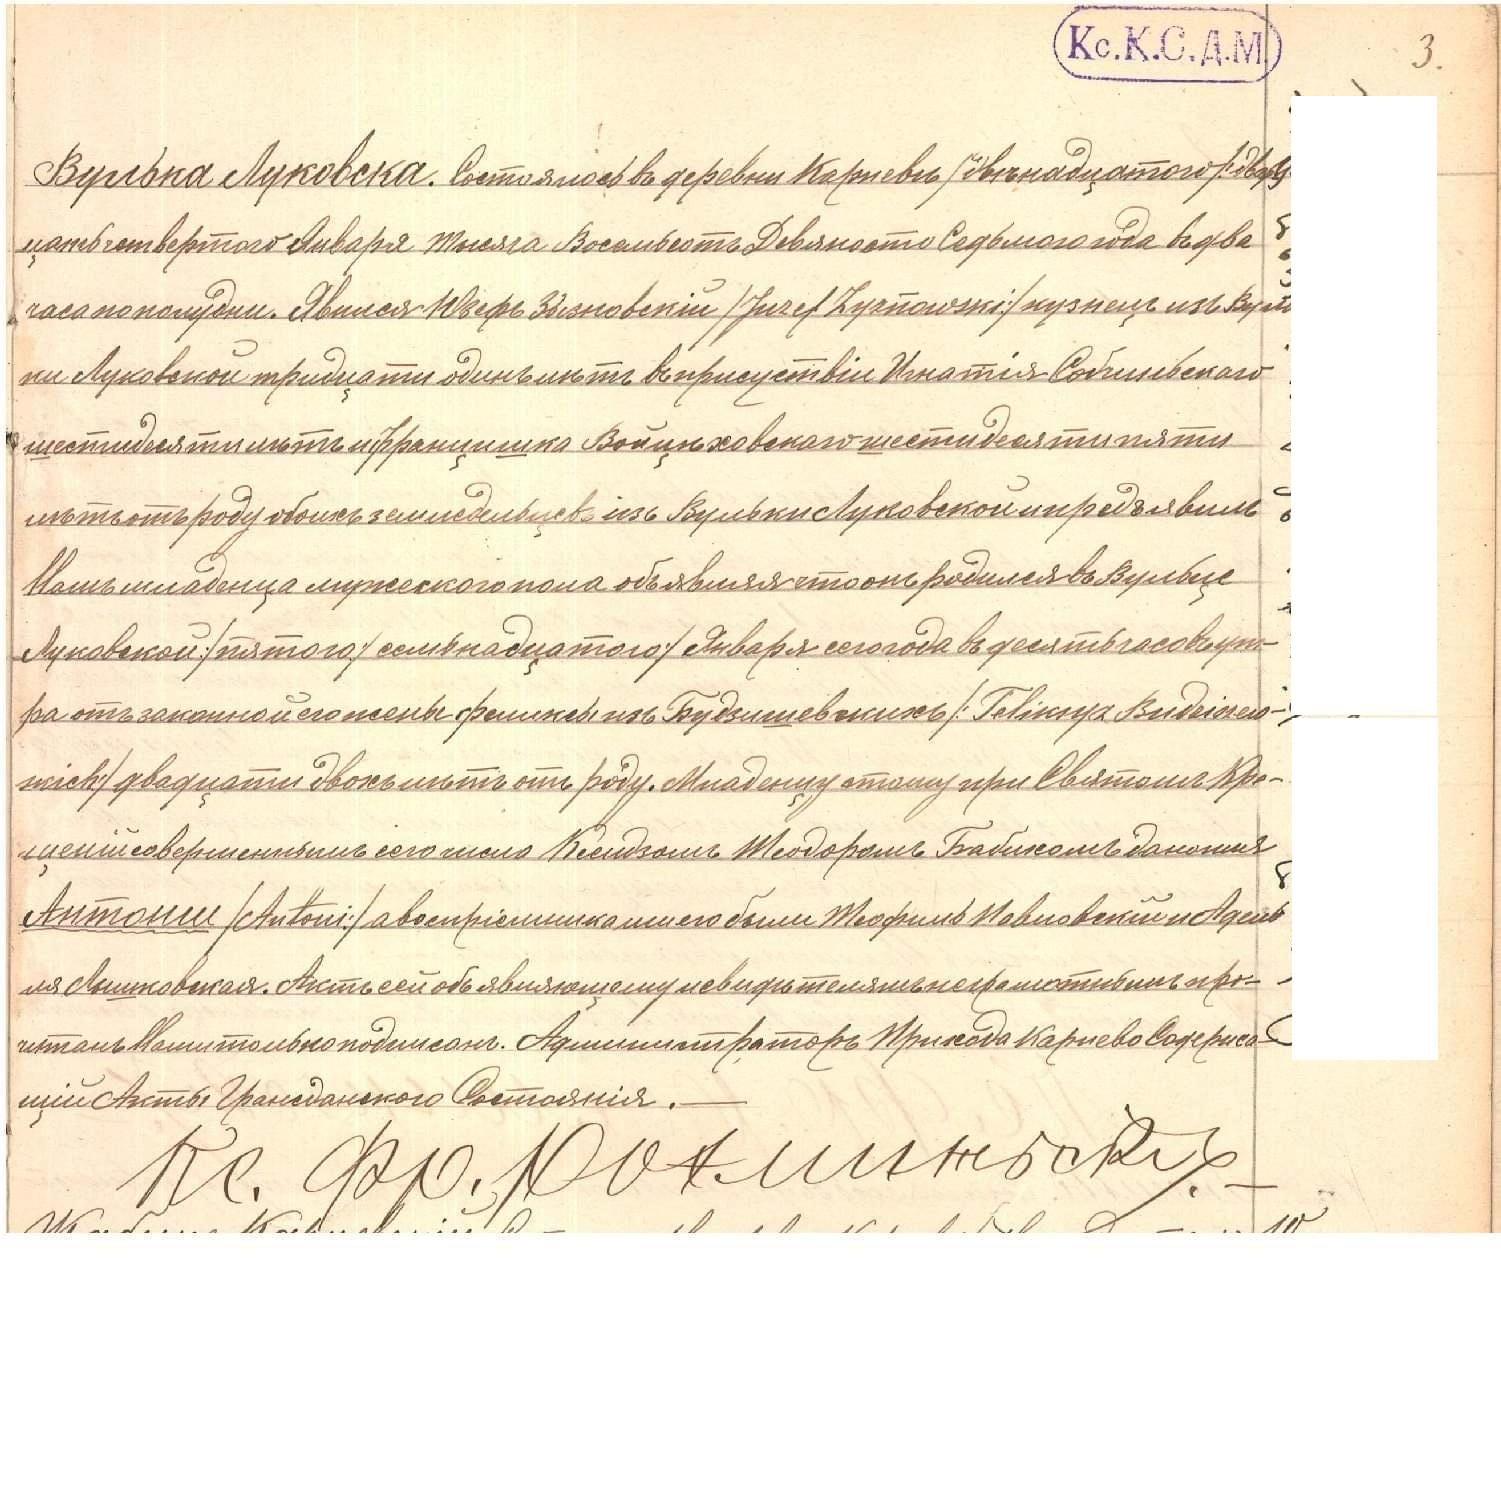 Кс.К.С.Д.М.
3.
Вулька Луковска. Состоялось въ деревни Карневѣ /: двѣнадцатого /: двад
цать четвертого Января Тысяча Восемьсотъ Девяносто Седьмого года въ два
часа по полудни. Явился Юзефъ /Juzef Zyznowski:/ кузнецъ изъ Вуль
ки Луковской тридцати одинъ лѣтъ въ присутствіи Игнатія
шестидесяти лѣтъ и Францишка Войцѣховскаго шестидесяти пяти
лѣтъ отъ роду обоихъ земледѣльцевъ изъ Вульки Луковской и предъявилъ
Намъ младенца мужескаго пола объявляя что онъ родился въ Вульце
Луковской:/ пятого:/ семьнадцатого:/ Января сего года въ десять часовъ ут-
ра отъ законной его жены Феликсы изъ Будзишевскихъ /: Feliksyz
двадцати двохъ лѣтъ отъ роду. Младенцу этому при Святомъ Кре-
щеніи совершеннымъ сего числа Ксендзомъ Теодоромъ Бабикомъ дано имя
Антоній /Antoni:/ а воспріемниками его были Теофиль Павловскій и Адель
ля Лышковская. Актъ сей объявляющему и свидѣтелямъ неграмотнымъ про-
читанъ Нами только подписанъ. Администраторъ Прихода Карнево Содержа-
щій Акты Гражданского Состоянія. —
Кс. Фр.